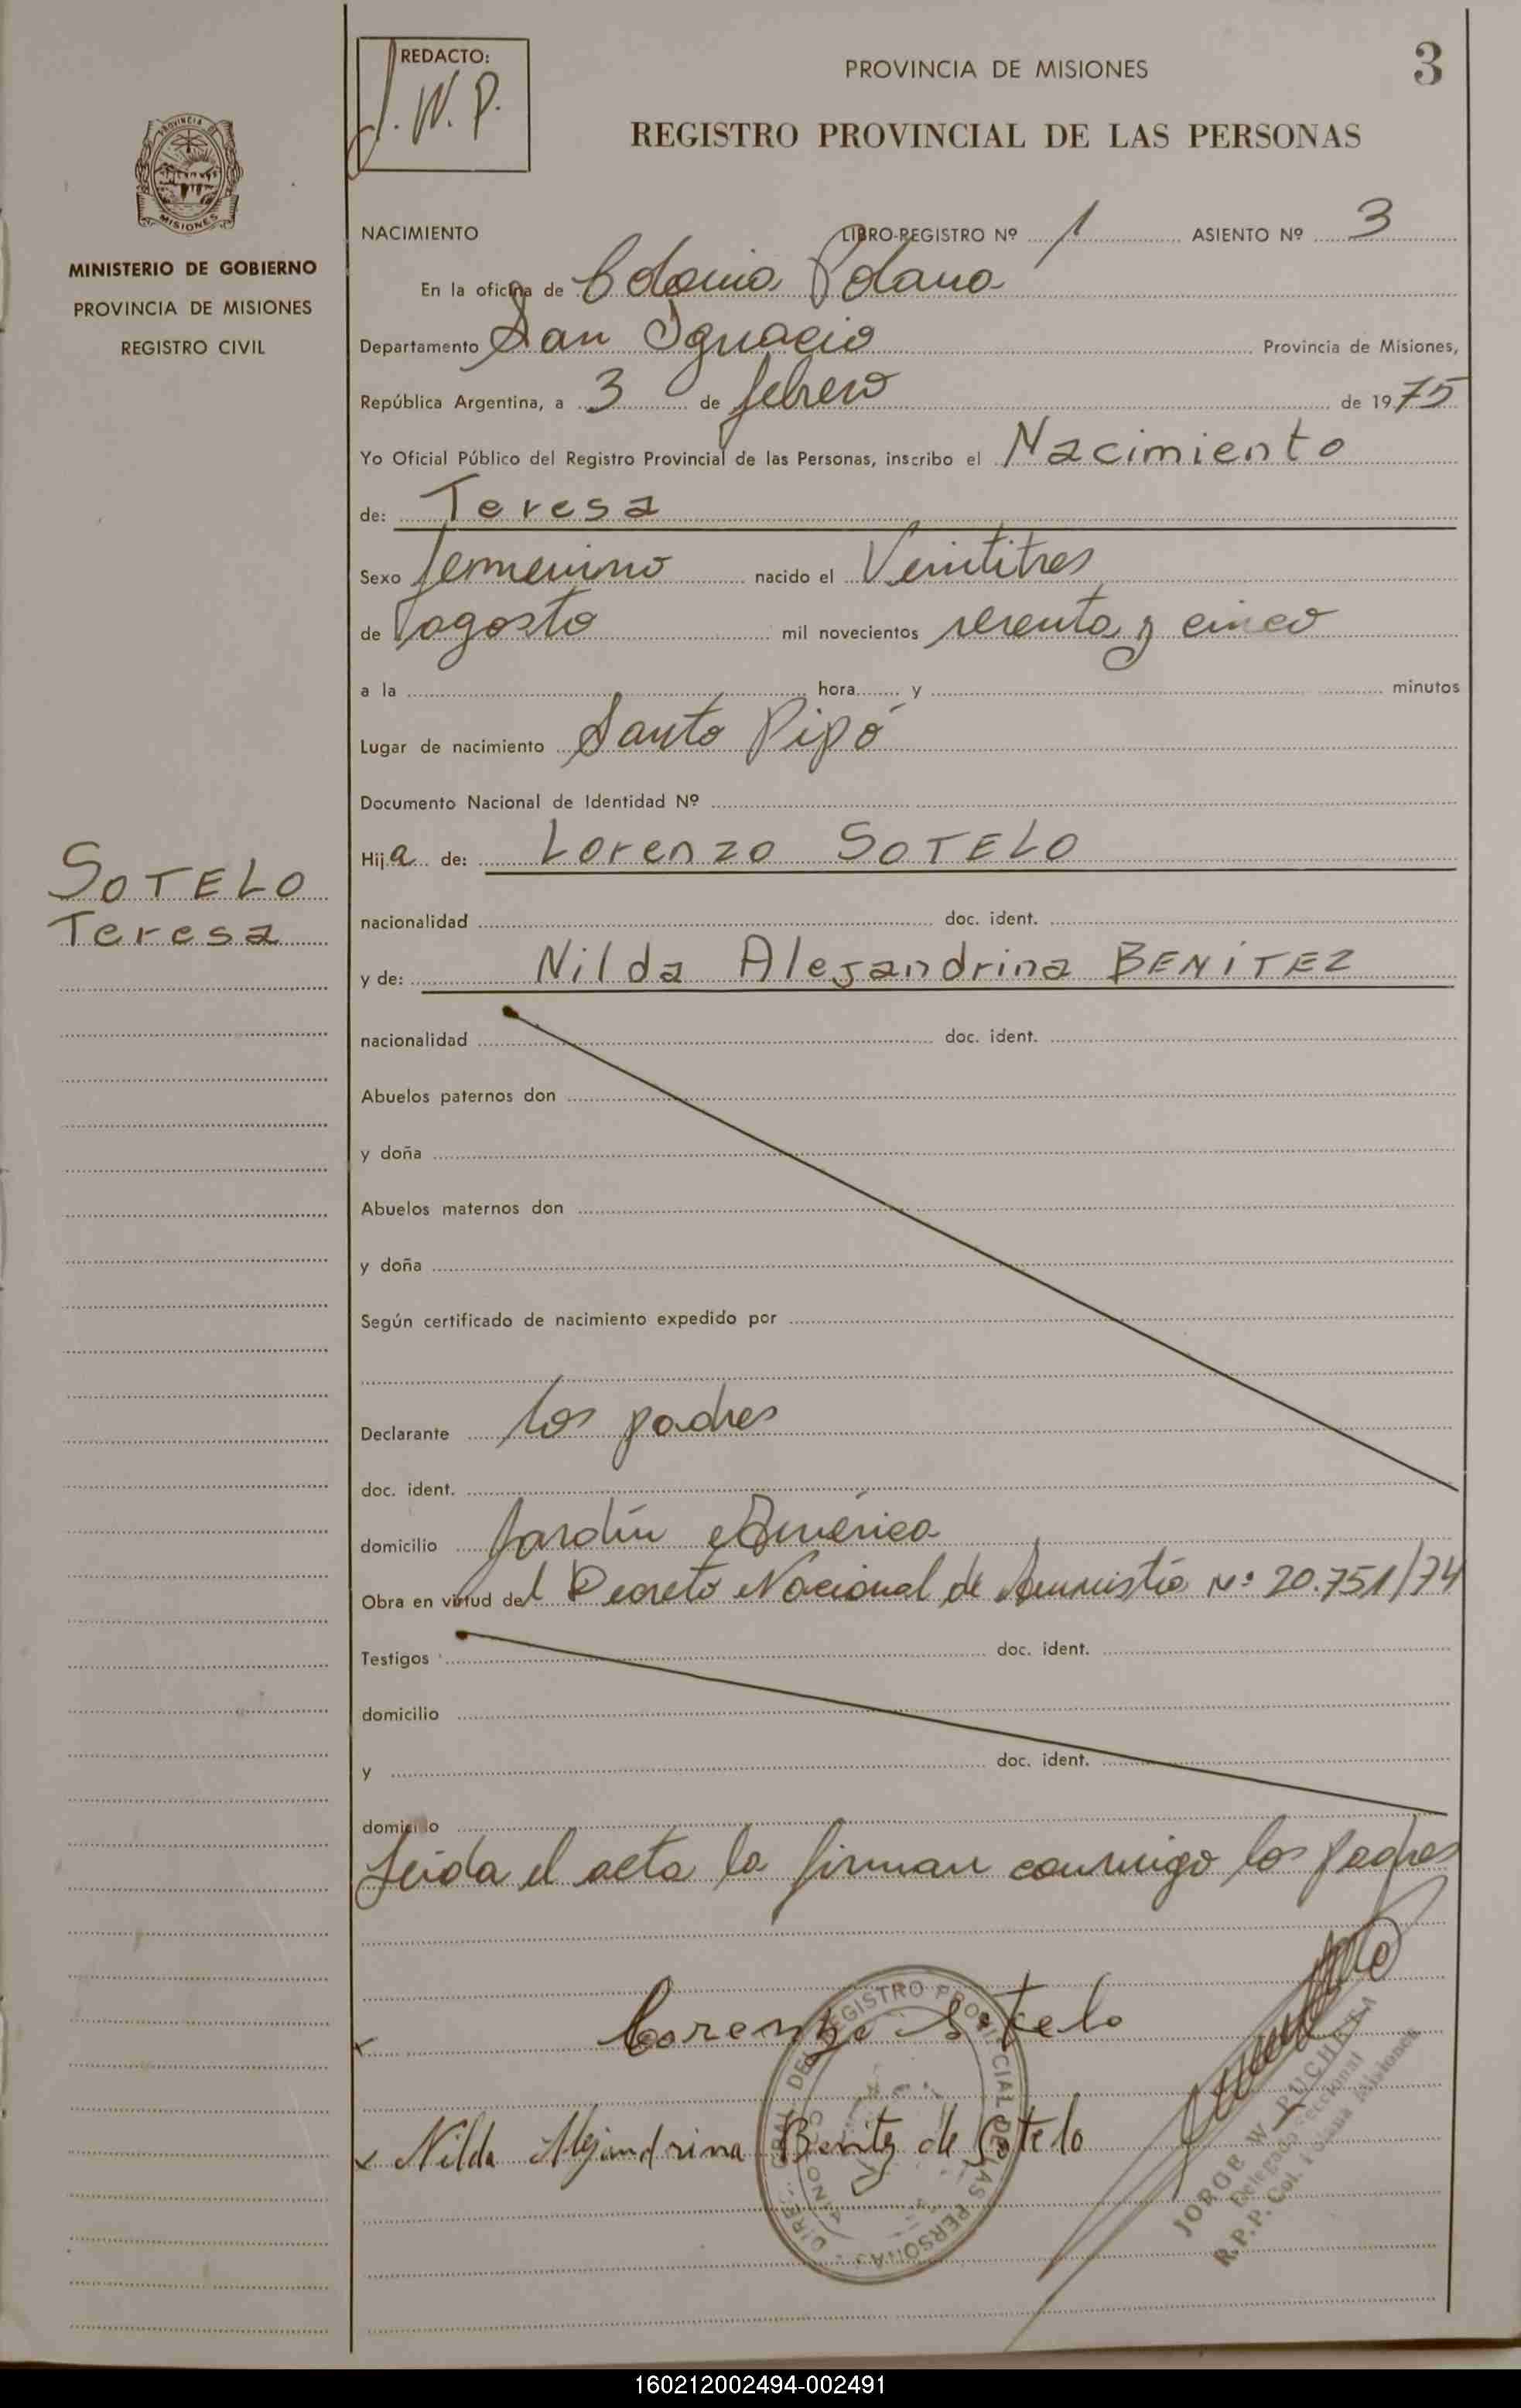 REDACTO:
J. W. P.
PROVINCIA DE MISIONES
3
REGISTRO PROVINCIAL DE LAS PERSONAS
PROVINCIA DE
MISIONES
MINISTERIO DE GOBIERNO
PROVINCIA DE MISIONES
REGISTRO CIVIL
NACIMIENTO LIBRO-REGISTRO Nº 1 ASIENTO Nº 3
En la oficina de Colonia Polana
Departamento San Ignacio Provincia de Misiones,
República Argentina, a 3 de febrero de 1975
Yo Oficial Público del Registro Provincial de las Personas, inscribo el Nacimiento
de: Teresa
Sexo femenino nacido el Veintitres
de agosto mil novecientos sesenta y cinco
a la hora y minutos
Lugar de nacimiento Santo Pipó
Documento Nacional de Identidad Nº
Hija de: Lorenzo SOTELO
SOTELO
Teresa
nacionalidad doc. ident.
y de: Nilda Alejandrina BENÍTEZ
nacionalidad doc. ident.
Abuelos paternos don
y doña
Abuelos maternos don
y doña
Según certificado de nacimiento expedido por
Declarante los padres
doc. ident.
domicilio Jardín América
Obra en virtud del Decreto Nacional de Amnistía Nº 20.751/74
Testigos doc. ident.
domicilio
y doc. ident.
domicilio
Leida el acta la firman conmigo los padres
x Lorenzo Sotelo
x Nilda Alejandrina Benitez de Sotelo
DEL REGISTRO PROVINCIAL DE LAS PERSONAS
JORGE W. PUCHETA
Delegado Seccional
R.P.P. Col. Polana Misiones
160212002494-002491